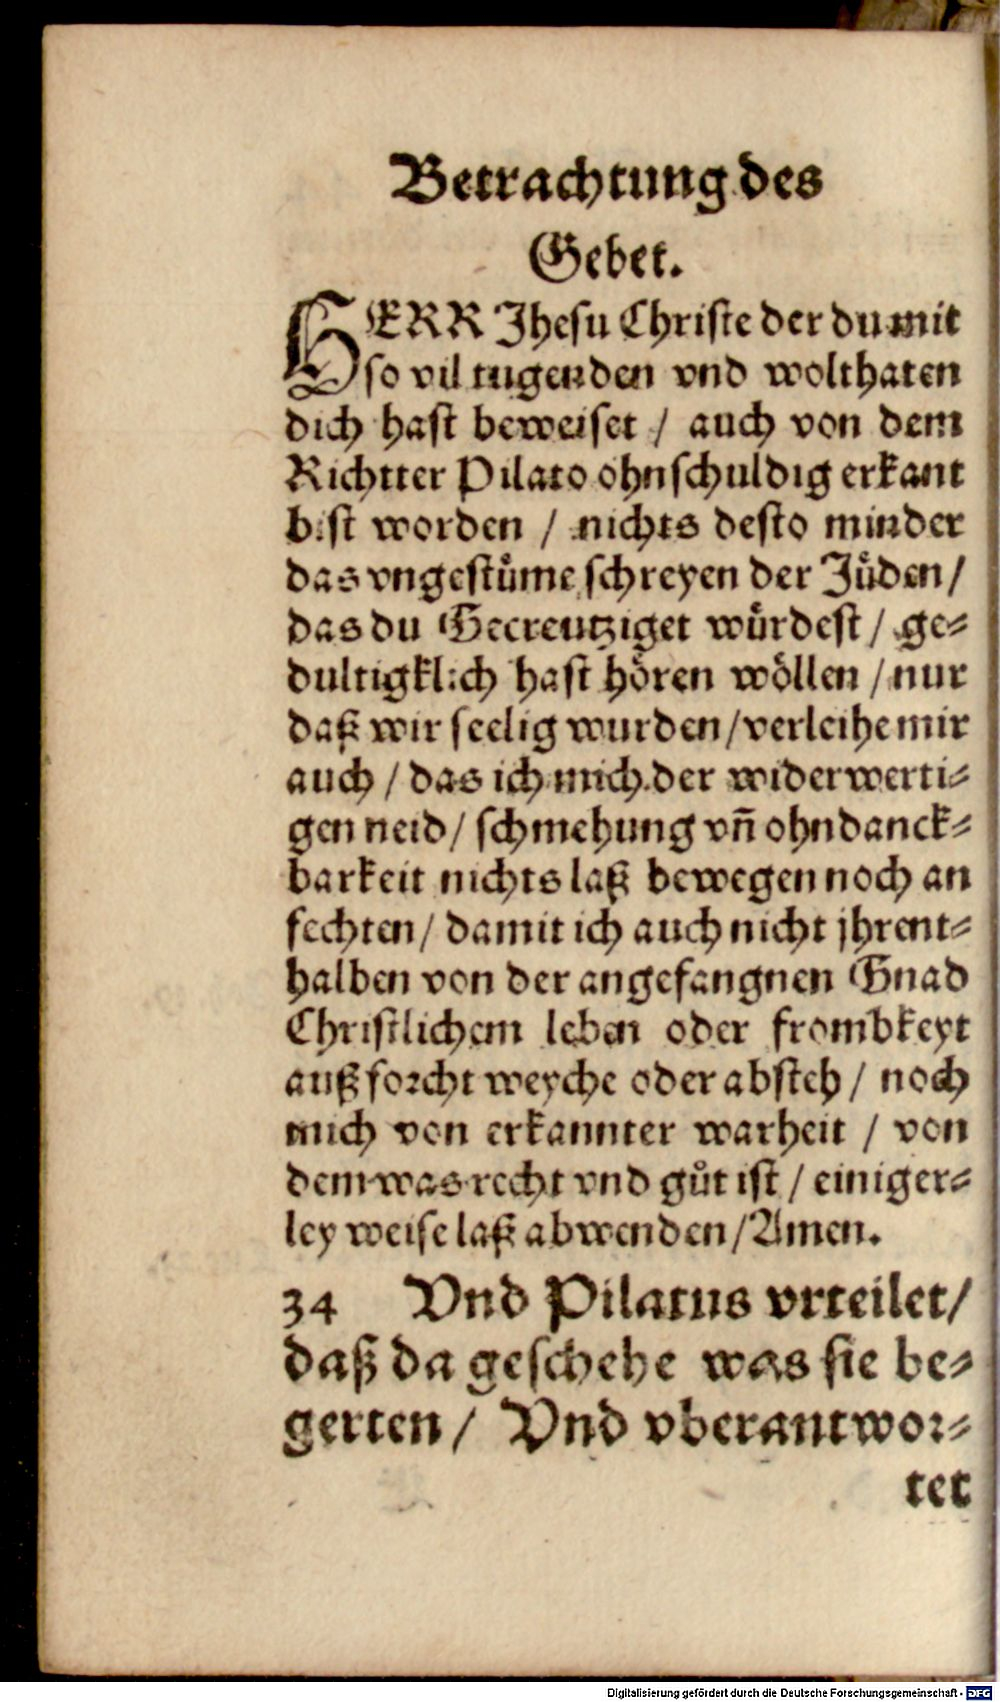 Betrachtung des
Gebet.
HERR Jhesu Christe der du mit
so vil tugenden vnd wolthaten
dich hast beweiset / auch von dem
Richtter Pilato ohnschuldig erkant
bist worden / nichts desto minder
das vngestuͤme schreyen der Juͤden /
das du Gecreutziget wuͤrdest / ge⸗
dultigklich hast hoͤren woͤllen / nur
daß wir seelig wurden / verleihe mir
auch / das ich mich der widerwerti⸗
gen neid / schmehung vñ ohndanck⸗
barkeit nichts laß bewegen noch an
fechten / damit ich auch nicht jhrent⸗
halben von der angefangnen Gnad
Christlichem leben oder frombkeyt
auß forcht weyche oder absteh / noch
mich von erkannter warheit / von
dem was recht vnd guͦt ist / einiger⸗
ley weise laß abwenden / Amen.
34 Vnd Pilatus vrteilet /
daß da geschehe was sie be⸗
gerten / Vnd vberantwor⸗
tet
Digitalisierung gefördert durch die Deutsche Forschungsgemeinschaft - DFG